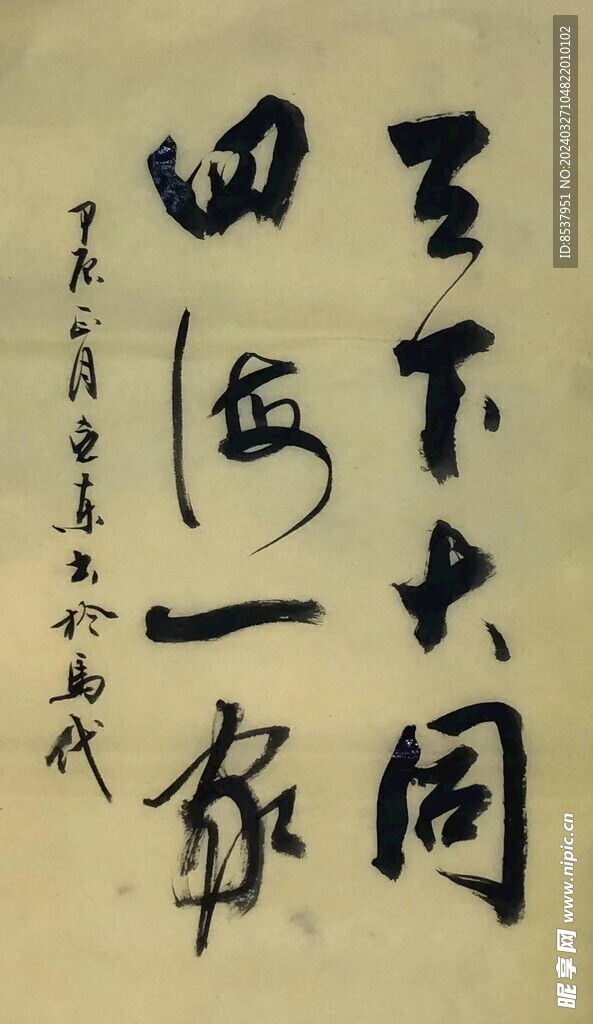 天下大同
四海一家
甲辰正月立东书於馬代
ID:8537951 NO:20240327104822010102
昵享网 www.nipic.cn